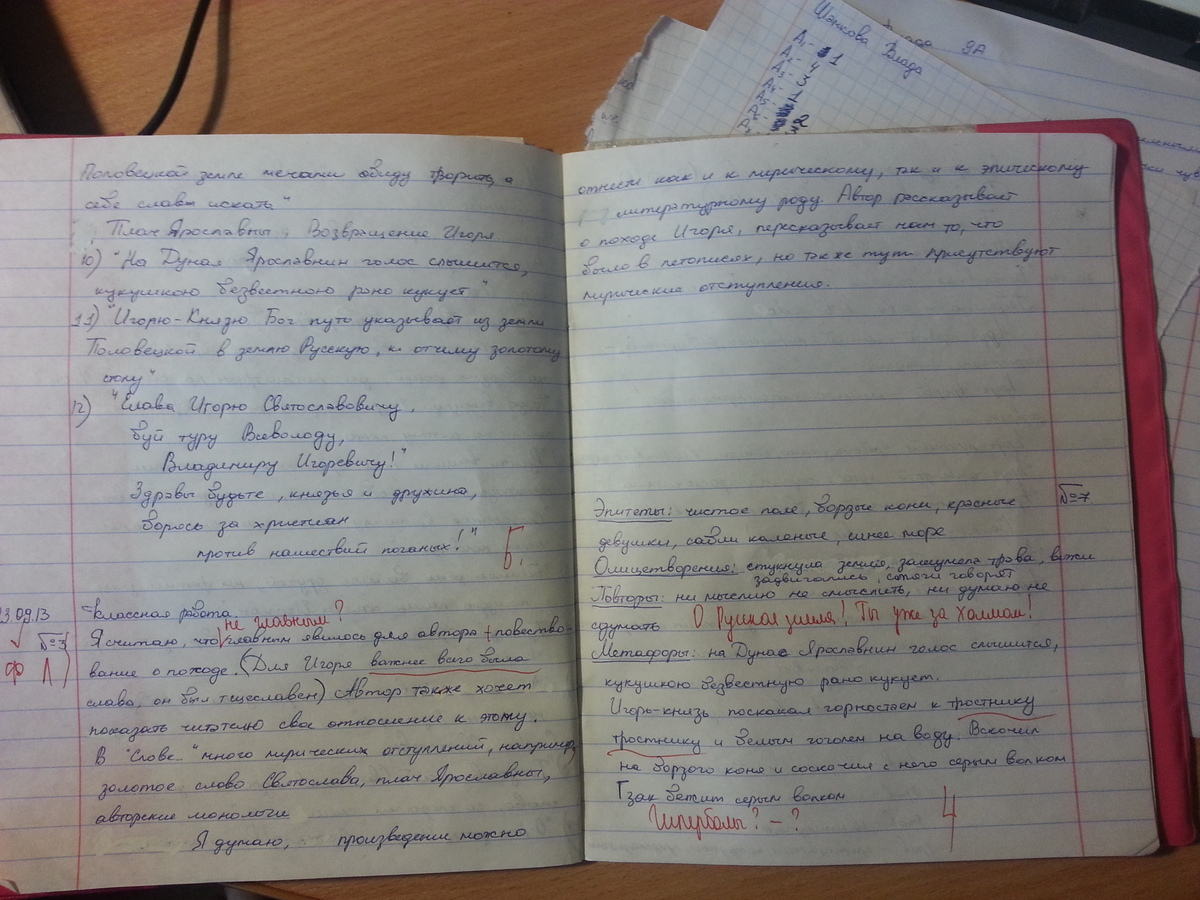 Шэнкова Влада
9А
А1- 1
А2- 4
А3- 3
А4- 1
Половецкой земле мечами обиду творить, а
себе славы искать"
Плач Ярославны. Возвращение Игоря
10) "На Дунае Ярославнин голос слышится,
кукушкою безвестною рано кукует"
11) "Игорю-Князю Бог путь указывает из земли
Половецкой в землю Русскую, к отчему золотому
столу"
12) "Слава Игорю Святославовичу,
буй туру Всеволоду,
Владимиру Игоревичу!"
Здравы будьте, князья и дружина,
борясь за христиан
против нашествий поганых!"
Б.
13.09.13
Классная работа.
не главным?
№3 Я считаю, что главным явилось для автора повество-
Ф Л
вание о походе. (Для Игоря важнее всего была
слава, он был тщеславен) Автор также хочет
показать читателю свое отношение к этому.
В "Слове.." много лирических отступлений, например,
золотое слово Святослава, плач Ярославны,
авторские монологи
Я думаю, произведение можно
отнести как и к лирическому, так и к эпическому
литературному роду. Автор рассказывает
о походе Игоря, пересказывает нам то, что
было в летописях, но также тут присутствуют
лирические отступления.
№7
Эпитеты: чистое поле, борзые кони, красные
девушки, сабли каленые, синее море
Олицетворения: стукнула земля, зашумела трава, вежи
задвигались, сороки говорят
Повторы: ни мыслию не смыслить, ни думаю не
сдумать О Руская земля! Ты уже за Холмом!
Метафоры: на Дунае Ярославнин голос слышится,
кукушкою безвестную рано кукует.
Игорь-князь поскакал горностаем к тростнику
тростнику и белым гоголем на воду. Вскочил
на борзого коня и соскочил с него серым волком
Гзак бежит серым волком
Гиперболы? - ?
4